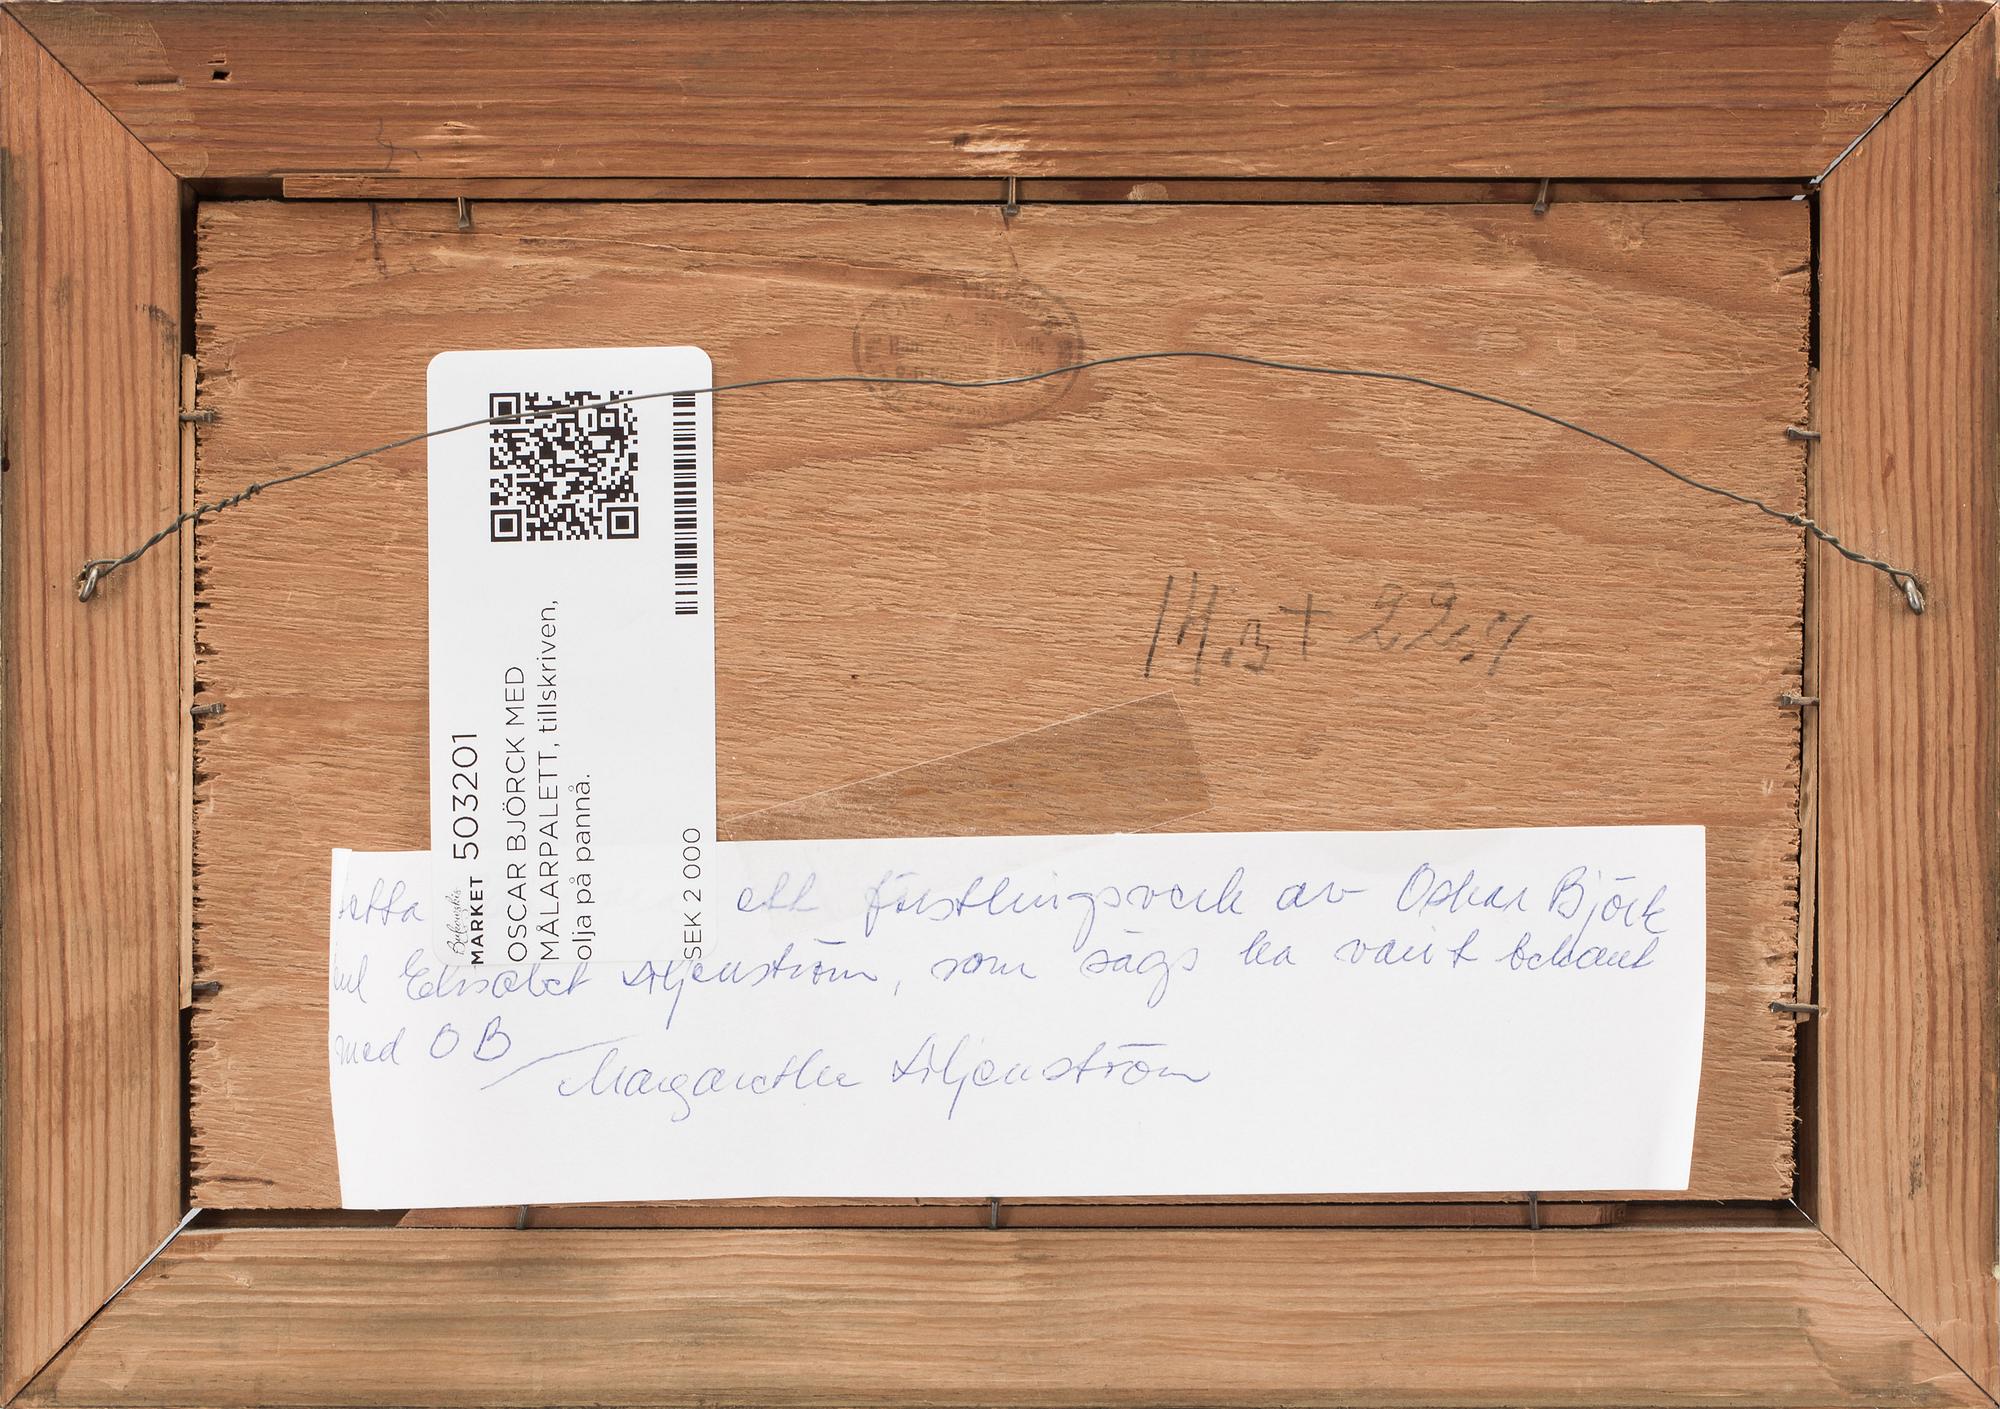 Bukowskis
MARKET 503201
OSCAR BJÖRCK MED
MÅLARPALETT, tillskriven,
olja på pannå.
SEK 2 000
14.3 + 22.4
ett förstlingsverk av Oskar Björk
Elisabet Liljenström, som sägs ha varit bekant
med OB
Margaretha Liljenström